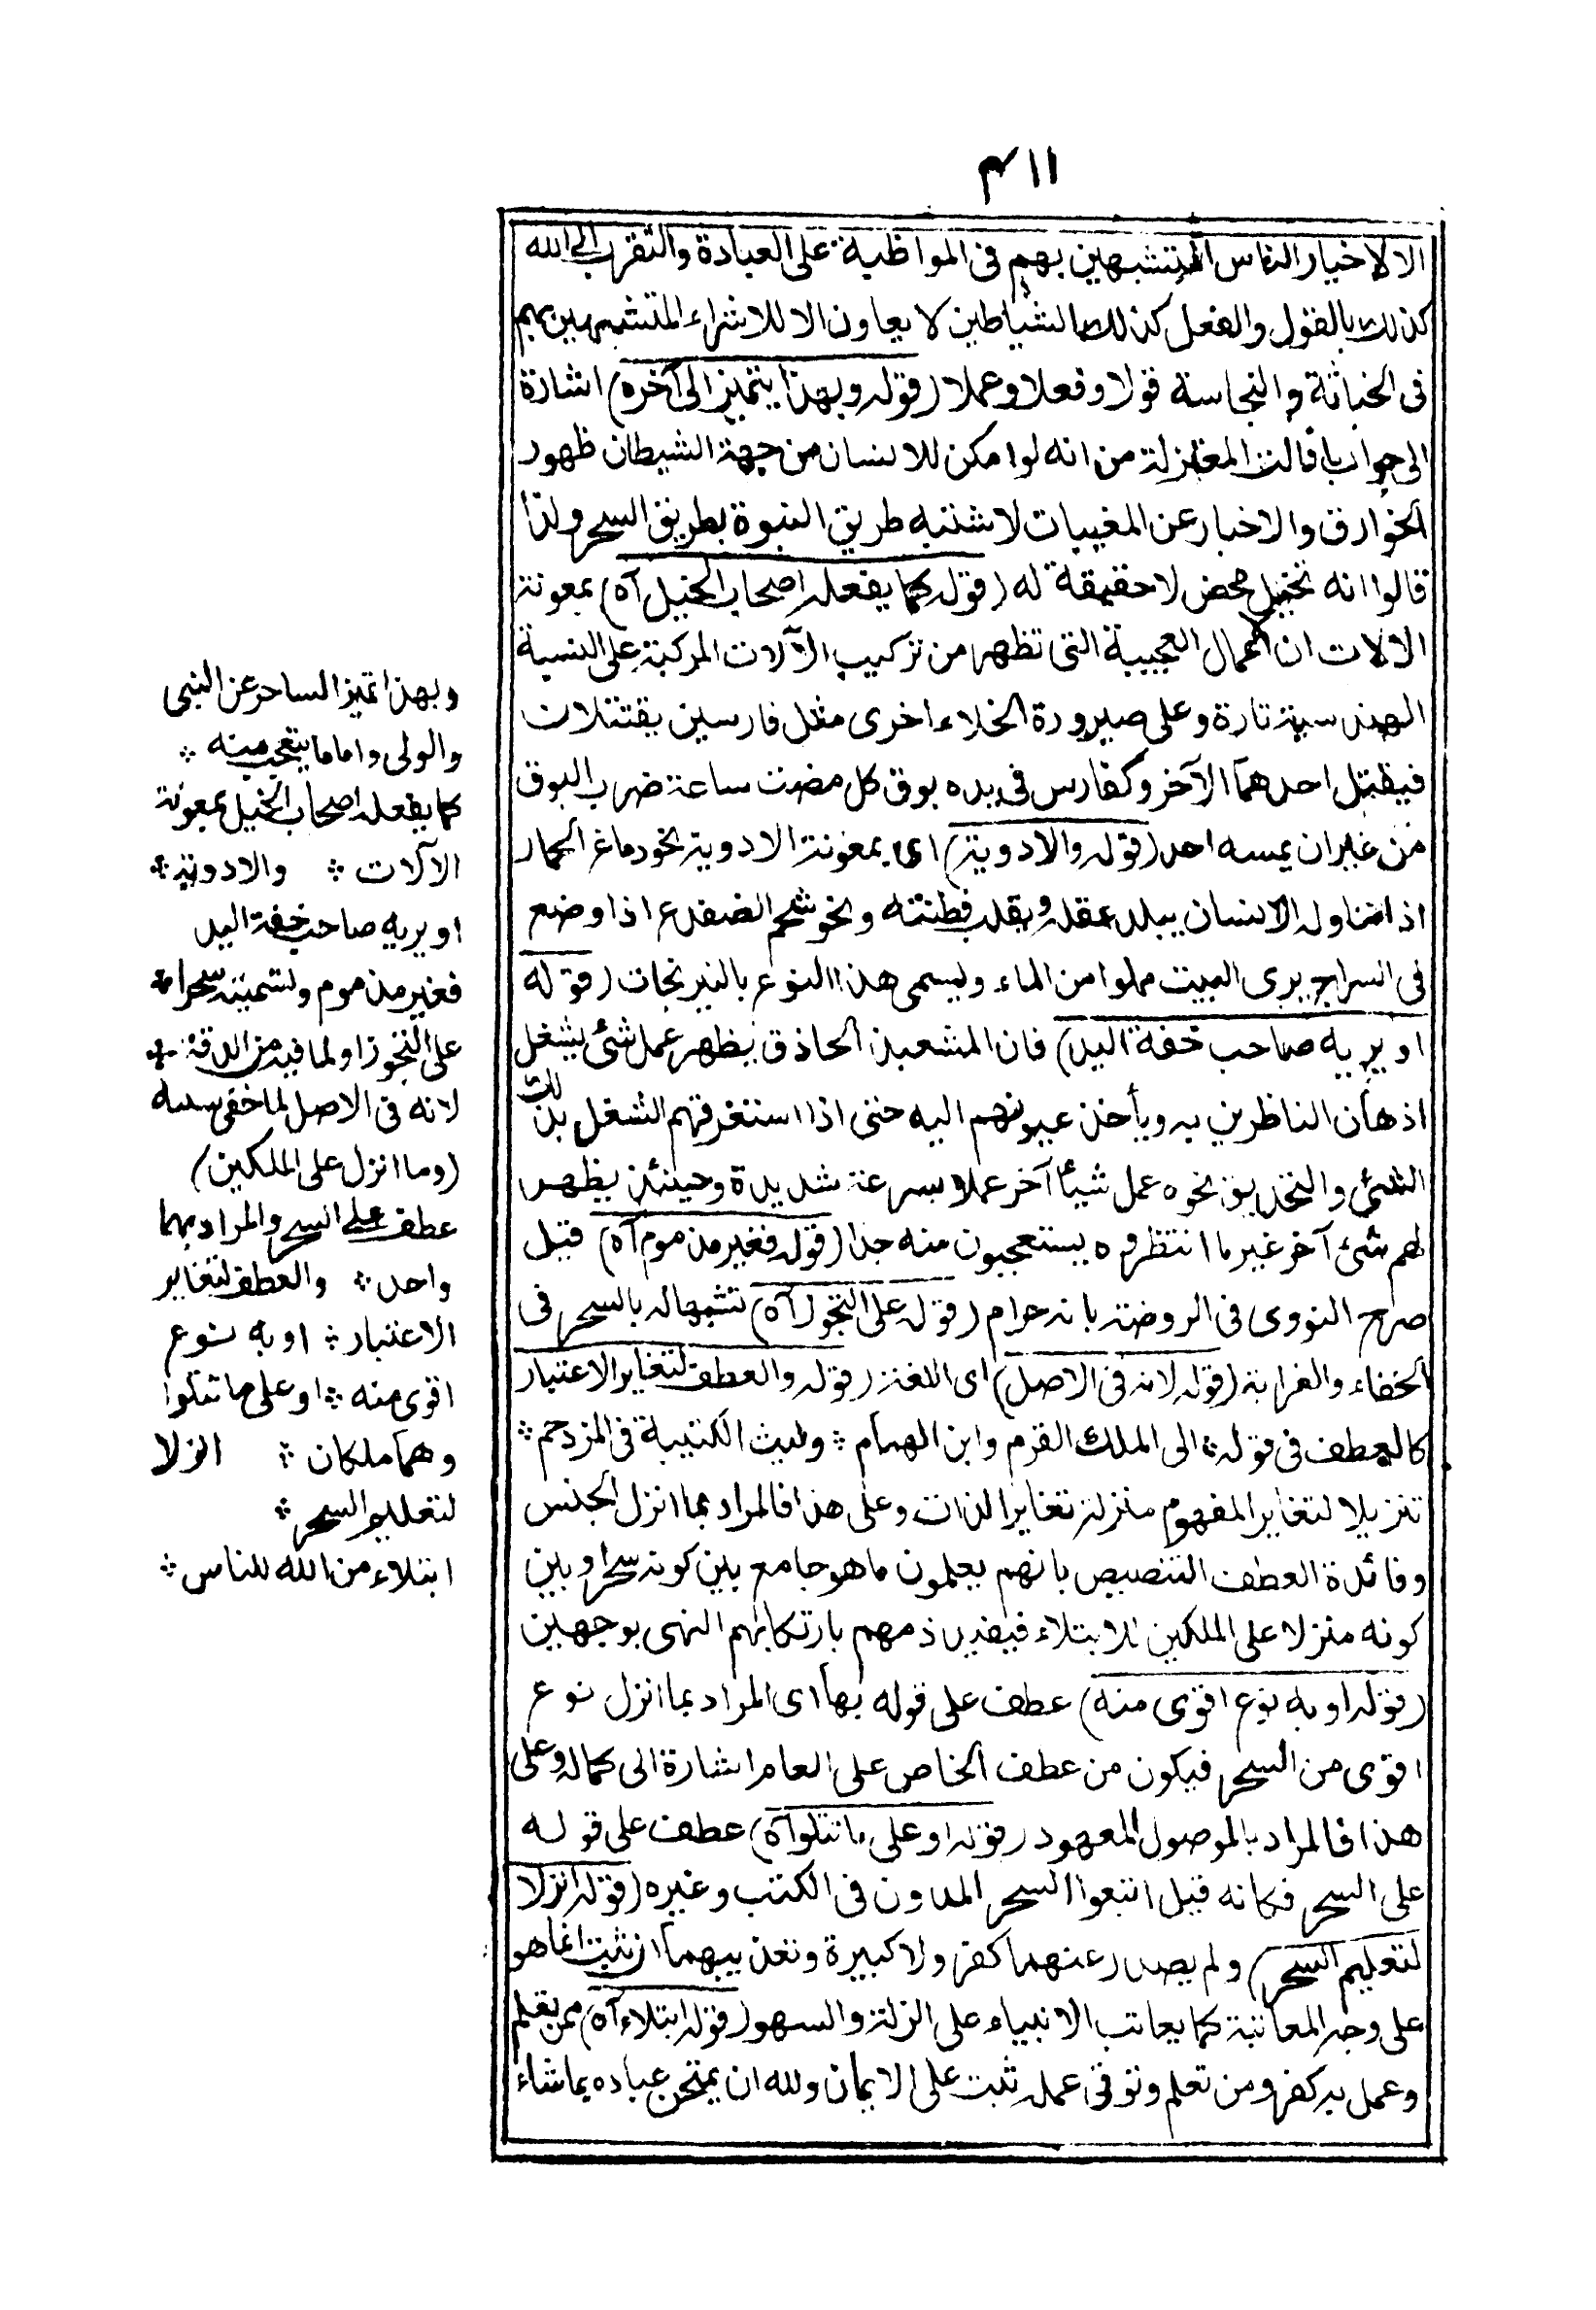 ٤١١
الا لاخيار الناس المتشبهين بهم فى المواظبة على العبادة والتقرب الى الله
كذلك بالقول والفعل كذلك الشياطين لا يعاون الا للاشرار المتشبهين بهم
فى الخباثة والنجاسة قولا وفعلا وعملا (قوله وبهذا يتميز الى آخره) اشارة
الى جواب ما قالت المعتزلة من انه لو امكن للانسان من جهة الشيطان ظهور
الخوارق والاخبار عن المغيبات لاشتبه طريق النبوة بطريق السحر ولذا
قالوا انه تخييل محض لا حقيقة له (قوله كما يفعله اصحاب الحيل آه) بمعونة
الالات ان الاعمال العجيبة التى تظهر من تركيب الآلات المركبة على النسبة
الهندسية تارة وعلى صيرورة الخلاء اخرى مثل فارسين يقتتلان
فيقتل احدهما الآخر وكفارس فى يده بوق كل مضت ساعة ضرب البوق
من غير ان يمسه احد (قوله والادوية) اى بمعونة الادوية نحو دماغ الحمار
اذا تناوله الانسان يبلد عقله ويقلب فطنته ونحو شحم الضفدع اذا وضع
فى السراج يرى البيت مملوا من الماء ويسمى هذا النوع بالنيرنجات (قوله
او يريه صاحب خفة اليد) فان المشعبذ الحاذق يظهر عمل شئ يشغل
اذهان الناظرين به ويأخذ عيونهم اليه حتى اذا استغرقهم الشغل بذلك
الشئ والتحديق نحوه عمل شيئا آخر عملا بسرعة شديدة وحينئذ يظهر
لهم شئ آخر غير ما انتظروه يستعجبون منه جدا (قوله فغير مذموم آه) قيل
صرح النووى فى الروضة بانه حرام (قوله على التجوز آه) تشبيها له بالسحر فى
الخفاء والغرابة (قوله لانه فى الاصل) اى اللغة (قوله والعطف لتغاير الاعتبار
كالعطف فى قوله ؞ الى الملك القرم وابن الهمام ؞ وليث الكتيبة فى المزدحم ؞
تنزيلا لتغاير المفهوم منزلة تغاير الذات وعلى هذا فالمراد بما انزل الجنس
وفائدة العطف التنصيص بانهم يعلمون ما هو جامع بين كونه سحرا وبين
كونه منزلا على الملكين للابتلاء فيفيد ذمهم بارتكابهم النهى بوجهين
(قوله او به نوع اقوى منه) عطف على قوله بها اى المراد بما انزل نوع
اقوى من السحر فيكون من عطف الخاص على العام اشارة الى كماله وعلى
هذا فالمراد بالموصول المعهود (قوله او على ما تتلوا آه) عطف على قوله
على السحر فكانه قيل اتبعوا السحر المدون فى الكتب وغيره (قوله انزلا
لتعليم السحر) ولم يصدر عنهما كفر ولا كبيرة وتعذيبهما ان ثبت انما هو
على وجه المعاتبة كما يعاتب الانبياء على الزلة والسهو (قوله ابتلاء آه) فمن تعلم
وعمل به كفر ومن تعلم وتوقى عمله ثبت على الايمان ولله ان يمتحن عباده بما شاء
وبهذا تميز الساحر عن النبى
والولى واما ما يتعجب منه ؞
كما يفعله اصحاب الحيل بمعونة
الآلات ؞ والادوية ؞
او يريه صاحب خفة اليد
فغير مذموم وتسميته سحرا ؞
على التجوز او لما فيه من الدقة ؞
لانه فى الاصل لما خفى سببه
(وما انزل على الملكين)
عطف على السحر والمراد بهما
واحد ؞ والعطف لتغاير
الاعتبار ؞ او به نوع
اقوى منه ؞ او على ما تتلوا
وهما ملكان ؞ انزلا
لتعليم السحر ؞
ابتلاء من الله للناس ؞